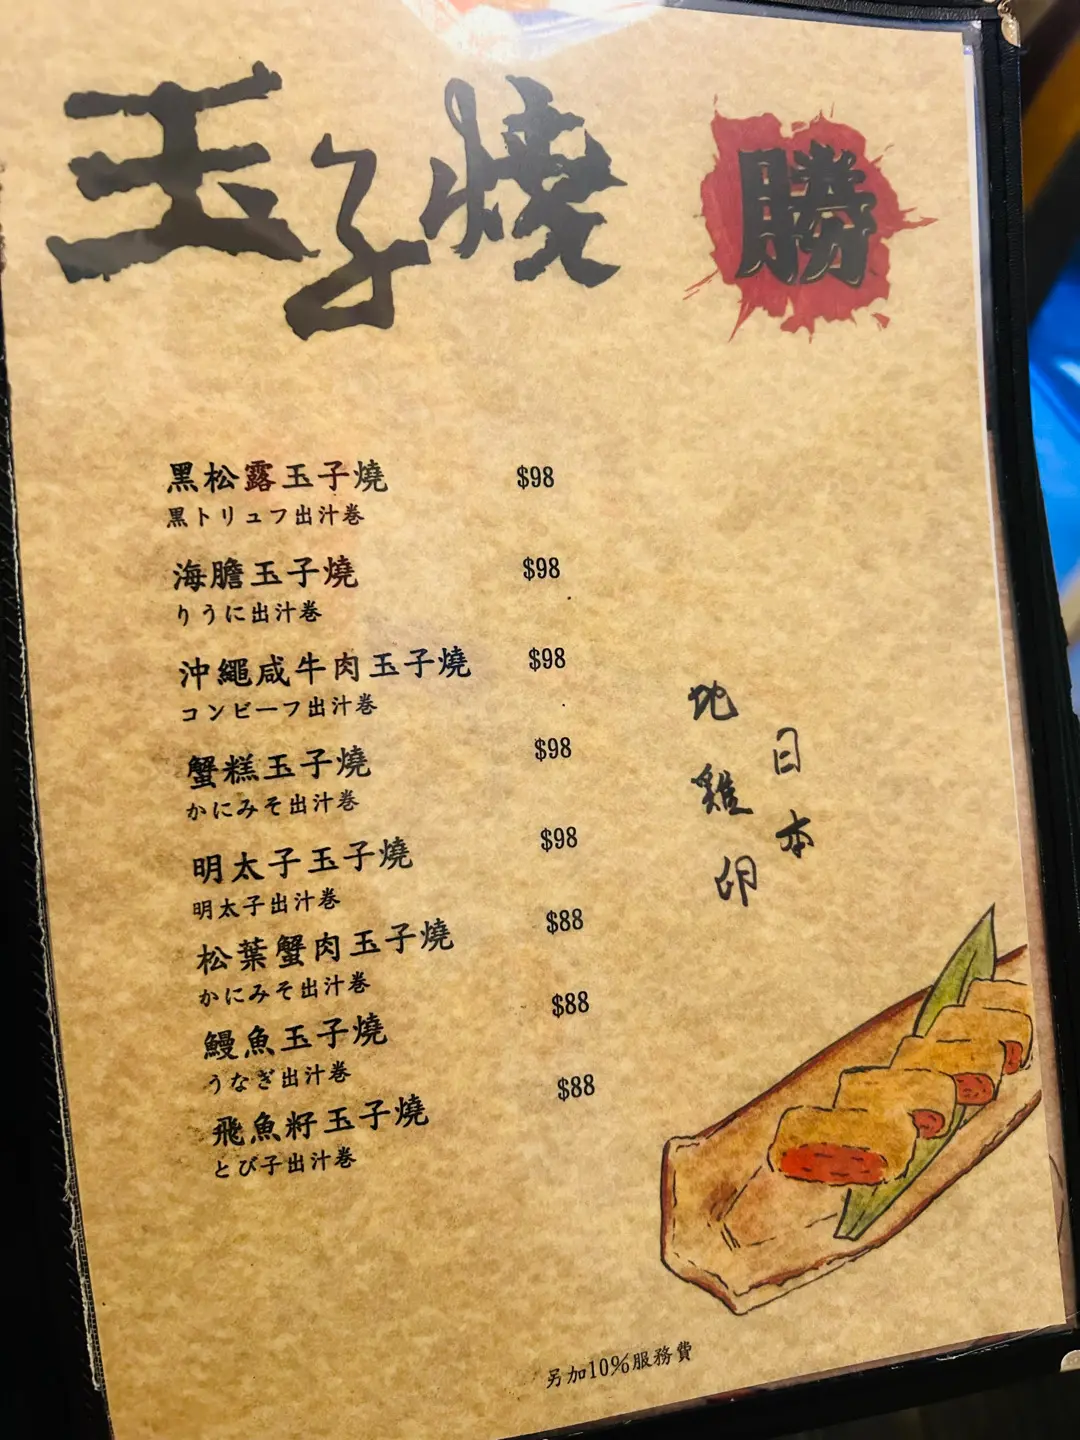 玉子燒
勝
黑松露玉子燒 $98
黒トリュフ出汁巻
海膽玉子燒 $98
りうに出汁巻
沖繩咸牛肉玉子燒 $98
コンビーフ出汁巻
蟹糕玉子燒 $98
かにみそ出汁巻
明太子玉子燒 $98
明太子出汁巻
松葉蟹肉玉子燒 $88
かにみそ出汁巻
鰻魚玉子燒 $88
うなぎ出汁巻
飛魚籽玉子燒 $88
とび子出汁巻
日本
地雞卵
另加10%服務費